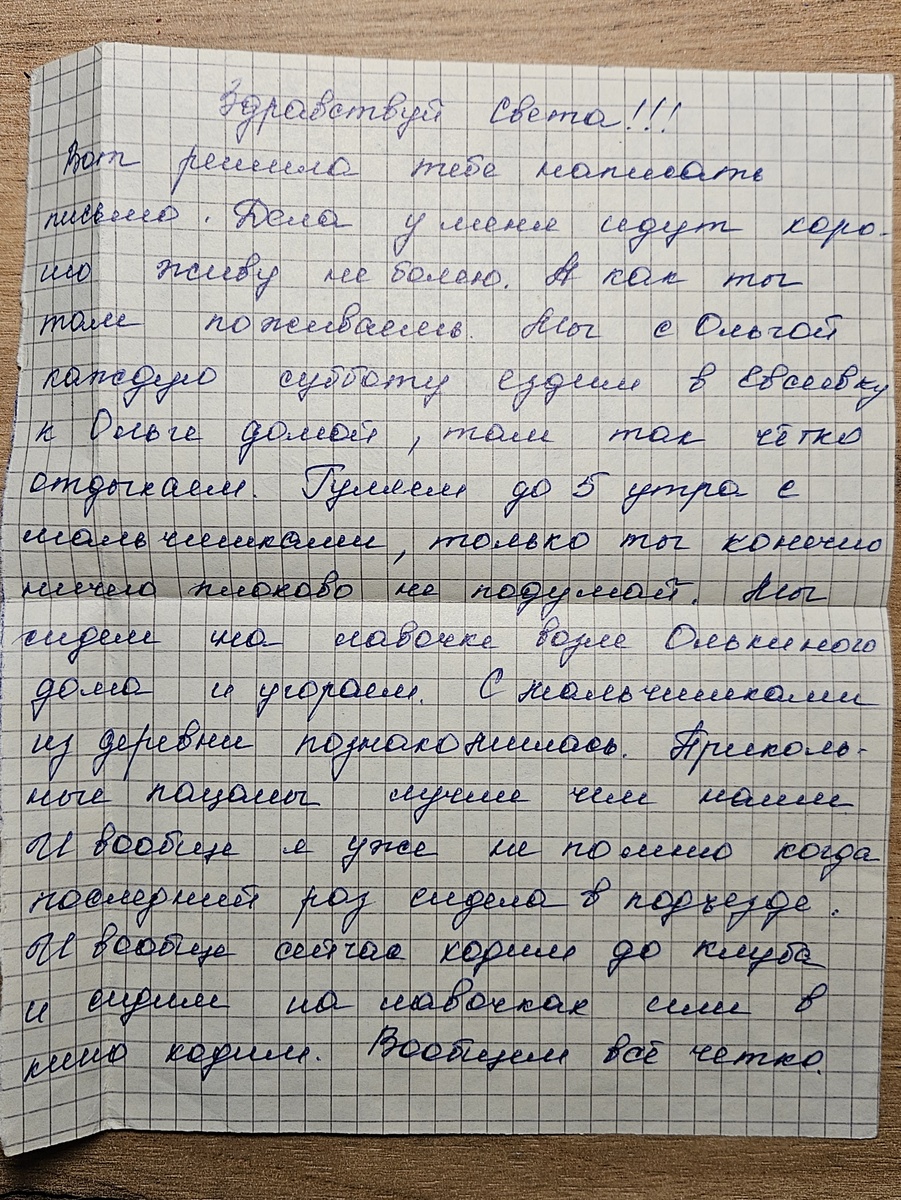 Здравствуй Света!!!
Вот решила тебе написать
письмо. Дела у меня идут хоро-
шо живу не болею. А как ты
там поживаешь. Мы с Ольгой
каждую субботу ездим в Евсеевку
к Ольге домой, там так чётко
отдыхаем. Гуляем до 5 утра с
мальчишками, только ты конечно
ничего плохово не подумай. Мы
сидем на лавочке возле Олькиного
дома и угораем. С мальчишками
из деревни познакомилась. Приколь-
ные пацаны лучше чем наши
И вообще я уже не помню когда
последний раз сидела в подъезде.
И вообще сейчас ходим до клуба
и сидим на лавочках или в
кино ходим. Вообщем всё четко.